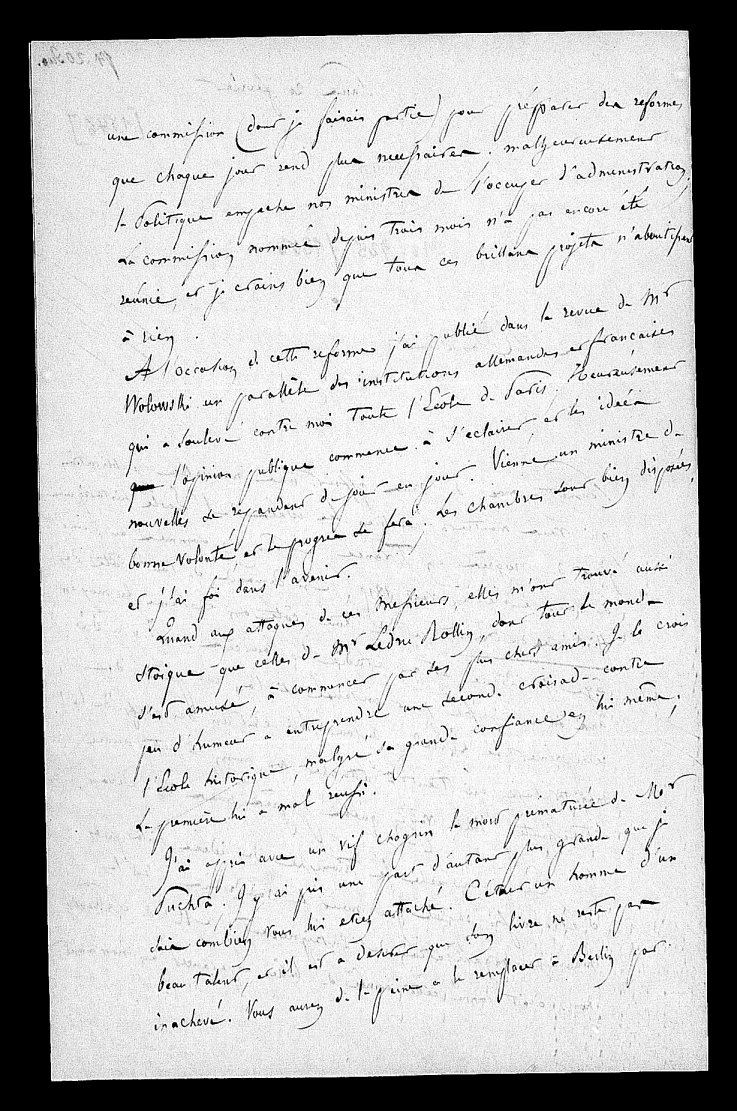 une commission (dont je faisais partie) pour préparer des reformes
que chaque jour rend plus necessaires. malheureusement
la Politique empeche nos ministres de s'occuper d'administration
La commission nommée depuis trois mois n'a pas encore été
reunie, et je crains bien que tous ces brillans projets n'aboutissent
à rien.
A l'occasion de cette reforme j'ai publié dans la revue de Mr
Wolowski un parallèle des institutions allemandes et francaises
qui a soulevé contre moi toute l'Ecole de Paris. Heureusement
l'opinion publique commence à s'eclairer et les ideés
nouvelles se repandent de jour en jour. Vienne un ministre de
bonne volonté, et le progrès se fera. Les chambres sont bien disposées,
et j'ai foi dans l'avenir.
Quand aux attaques de ces Messieurs, elles m'ont trouvé aussi
stoique que celles de Mr Ledru Rollin, dont tout le monde
s'est amusé, à commencer par ses plus chers amis. Je le crois
peu d'humeur a entreprendre une seconde croisade contre
l'Ecole historique, malgré sa grande confiance en lui même;
La première lui a mal reussi.
J'ai appris avec un vif chagrin la mort prematurée de Mr
Puchta. J'y ai pris une part d'autant plus grande que je
sais combien vous lui etiez attaché. C'était un homme d'un
beau talent, et il est a desirer que son livre ne reste pas
inachevé. Vous aurez de la peine a le remplacer à Berlin par